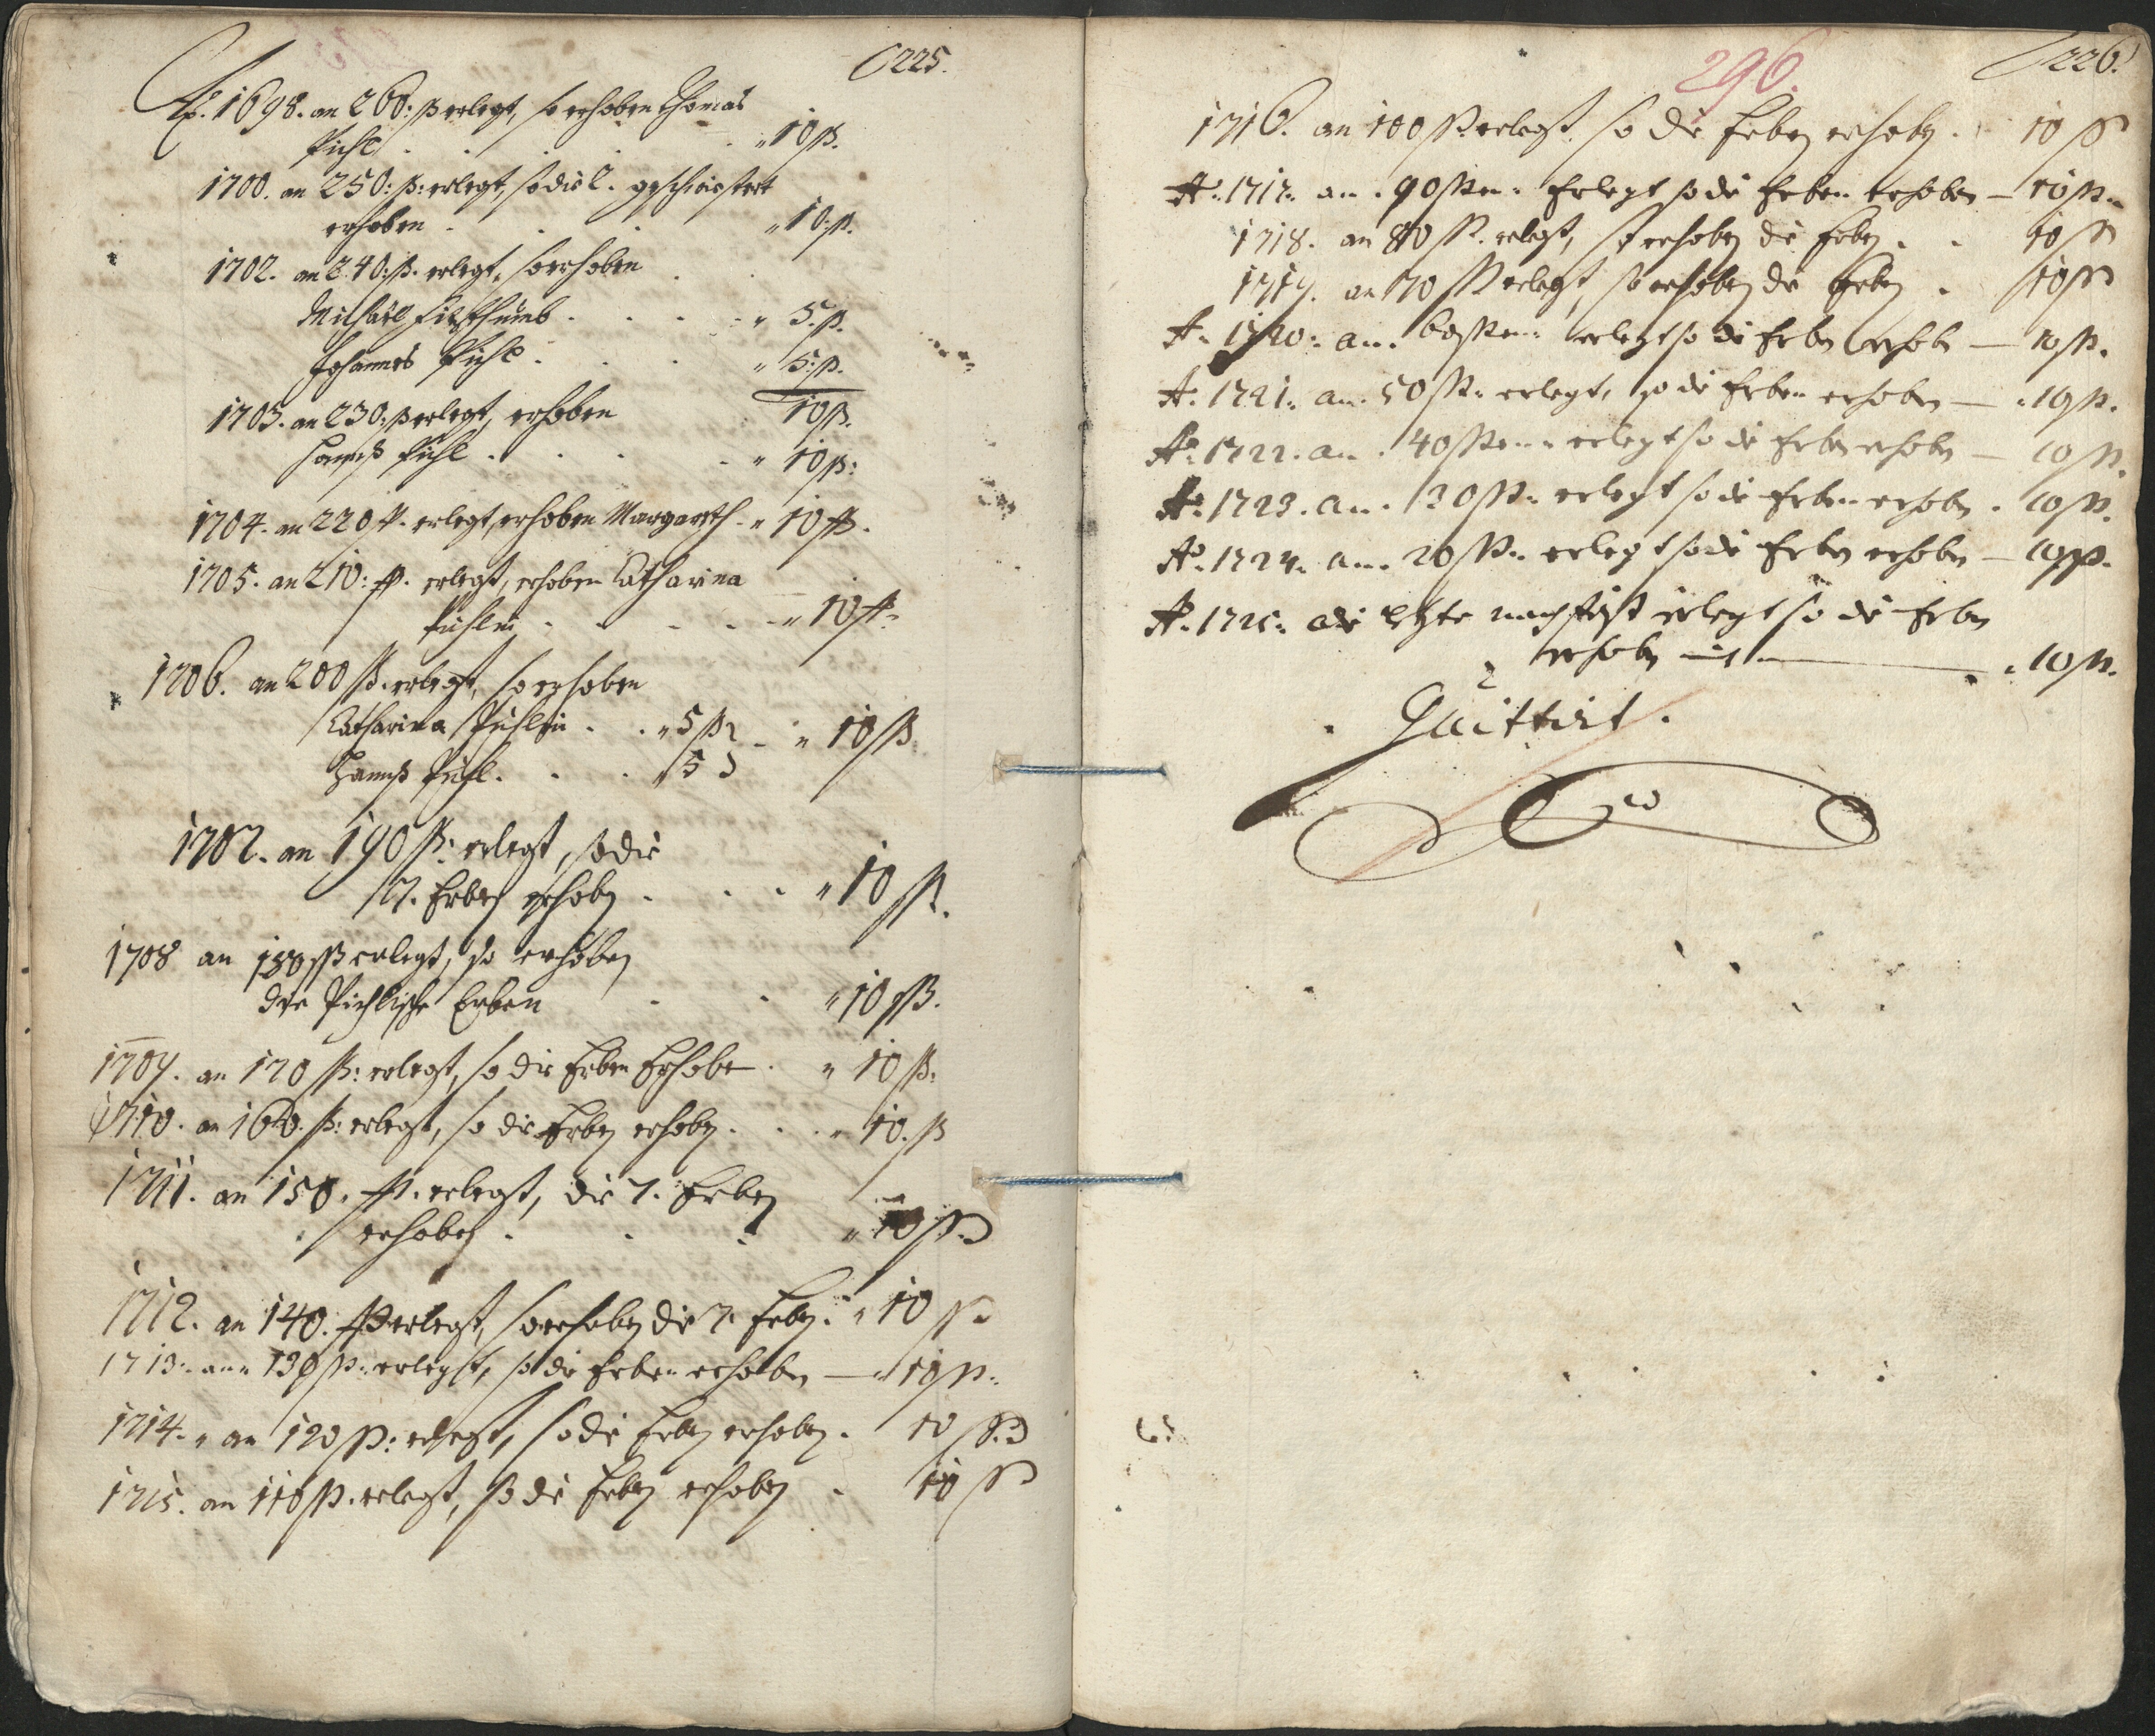 225.
Ao. 1698. an 260: ß erlegt, so erhoben Thomas
Pichl . . . . . " 10 ß.
1700. an 250: ß: erlegt, so die 2. geschwistert
erhoben . . . " 10. ß.
1702. an 240: ß. erlegt, so erhoben
Michael . . . " 5. ß.
Johannes Pichl . . . " 5: ß.
10 ß.
1703. an 230: ß erlegt, erhoben
Hannß Pichl . . . . " 10 ß:
1704. an 220 ß. erlegt, erhoben Margareth . " 10 ß.
1705. an 210: ß. erlegt, erhoben Catharina
Pichlin . . . . " 10 ß.
1706. an 200 ß. erlegt, so erhoben
Catharina Pichlin . . " 5 ß . " 10 ß
Hannß Pichl . . . 5
1707. an 190 ß: erlegt, so die
7. Erben erhoben . . . " 10 ß.
1708 an 180 ß erlegt, so erhoben
die Pichlische Erben . . " 10 ß.
1709. an 170 ß: erlegt, so die Erben Erhoben . " 10 ß:
1710. an 160. ß: erlegt, so die Erben erhoben . . . " 10. ß
1711. an 150. ß. erlegt, die 7. Erben
erhoben . . . " 10 ß.
1712. an 140. ß erlegt, so erhoben die 7. Erben . " 10 ß.
1713. ann 130 ß: erlegt, so die Erben erhoben — " 10 ß.
1714. " an 120 ß: erlegt, so die Erben erhoben . 10 ß.
1715. an 110 ß. erlegt, so die Erben erhoben . 10 ß
296.
226.
1716. an 100 ß. erlegt. so die Erben erhoben . 10 ß
Ao. 1717. an . 90 ß Erlegt so die Erben erhoben — 10 ß.
1718. an 80 ß. erlegt, so erhoben die Erben . . 10 ß
1719. an 70 ß erlegt, so erhoben die Erben . 10 ß
A. 1720: an. 60 ß erlegt so die Erben erhoben — 10 ß.
A. 1721. an. 50 ß. erlegt, so die Erben erhoben — . 10 ß.
Ao. 1722. an . 40 ß erlegt so die Erben erhoben — 10 ß.
Ao. 1723. an. 30 ß. erlegt so die Erben erhoben . 10 ß.
Ao. 1724. an. 20 ß. erlegt so die Erben erhoben — 10 ß.
A. 1725. die letzte nachfrist erlegt so die Erben
erhoben mit — . 10 ß.
Quittirt .